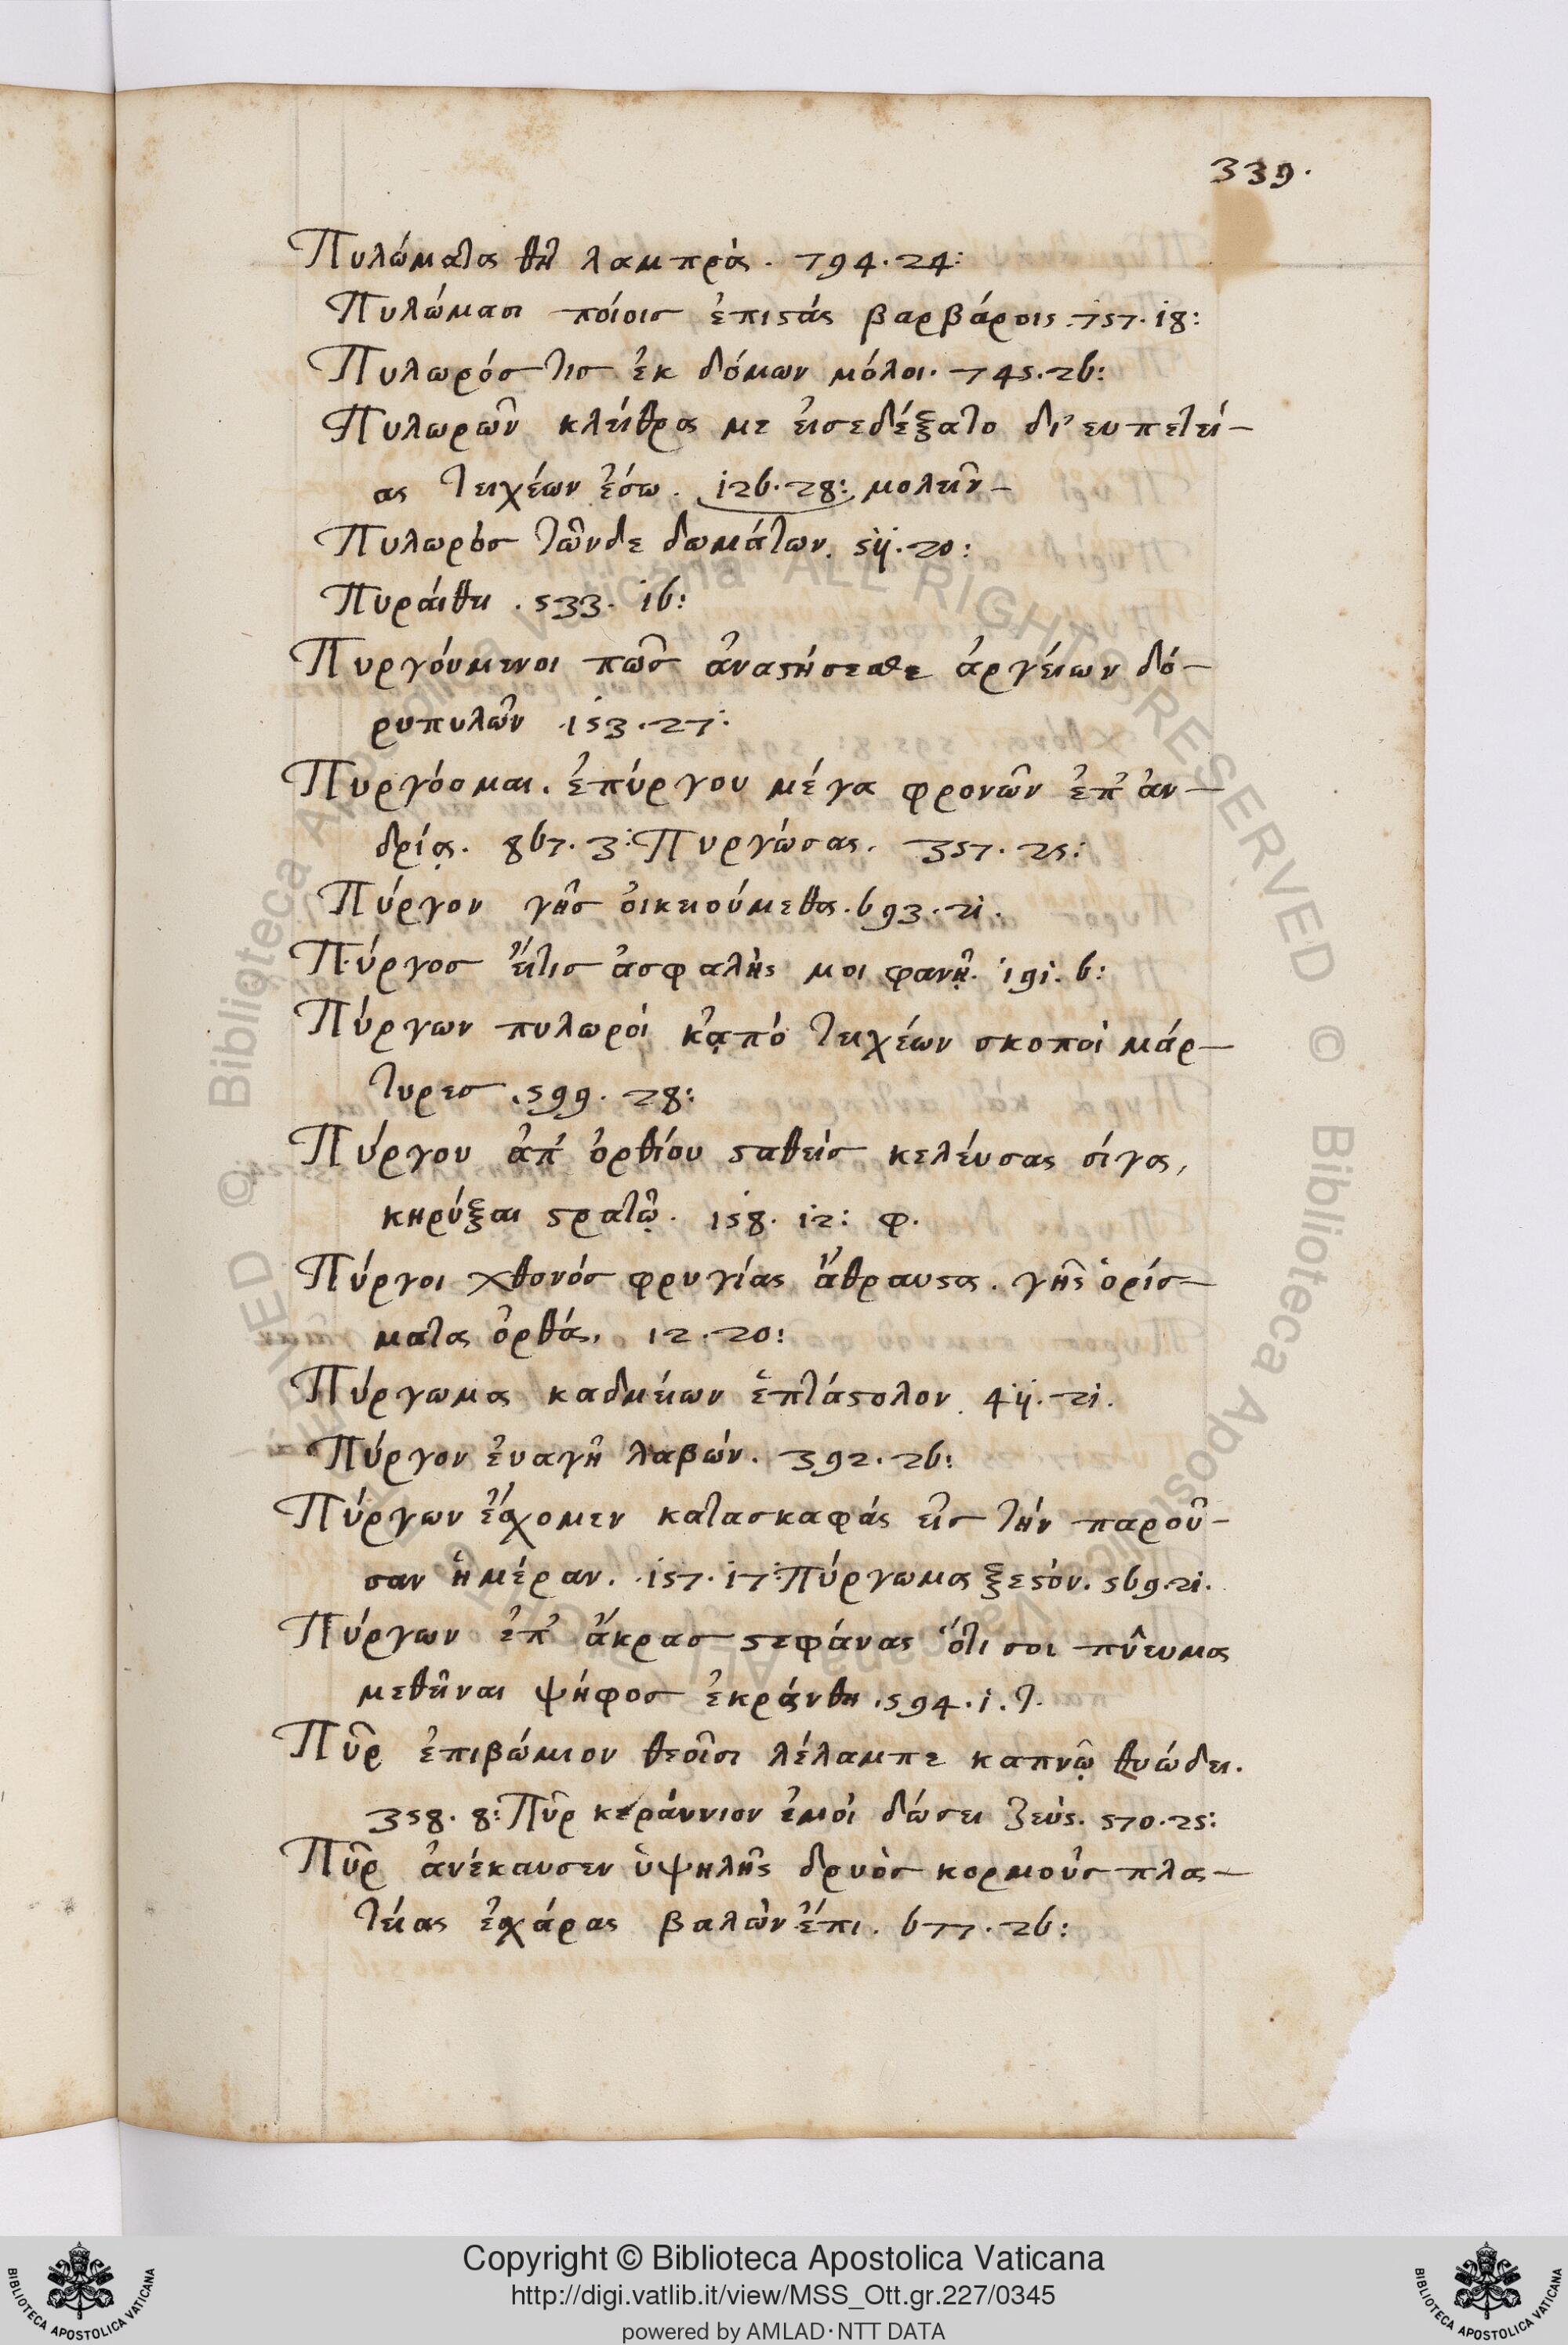 339.
Πυλώματα θῆ λαμπρὰ. 794.24:
Πυλώμασι ποίοις ἐπιστὰς βαρβάροις. 757.18:
Πυλωρός τις ἐκ δόμων μόλοι. 745.26:
Πυλωρῶν κλεῖθρα με εἰσεδέξατο δι' ευπετεί-
ας τειχέων ἔσω. 126.28: μολεῖν-
Πυλωρὸς τῶνδε δωμάτων. 511.20:
Πυράιθει. 533. 16:
Πυργούμενοι πῶς ἀναστήσεσθε ἀργείων δό-
ρυπυλῶν. 153.27:
Πυργόομαι. ἐπύργου μέγα φρονῶν ἐπ' ἀν-
δρίᾳ. 867.3: Πυργώσας. 357.25:
Πύργον γῆς οἰκειούμεθα. 693.21.
Πύργος ἤ̓τις ἀσφαλὴς μοι φανῇ. 191.6:
Πύργων πυλωροὶ κᾀπὸ τειχέων σκοποὶ μάρ-
τυρες. 599. 28:
Πύργου ἀπ' ὀρθίου σταθεὶς κελεύσας σίγα,
κηρύξαι στρατῷ. 158. 12: φ.
Πύργοι χθονός φρυγίας ἄθραυστα. γῆς ὁρίσ-
ματα ὀρθά. 12.20:
Πύργωμα καδμείων ἑπτάστολον. 411.21.
Πύργον ἐυαγῆ λαβών. 392.26:
Πύργων ἔσχομεν κατασκαφὰς εἰς τὴν παροῦ-
σαν ἡμέραν. 157.17: Πύργωμα ξεστόν. 569.21.
Πύργων ἐπ' ἄκρας στεφάνας ὅτι σοι πνεῦμα
μεθεῖναι ψῆφος ἐκράνθη. 594.1.τ.
Πῦρ ἐπιβώμιον θεοῖσι λέλαμπε καπνῷ θυώδει.
358.8: Πῦρ κεράυνιον ἐμοὶ δώσει Ζεὺς. 570.25:
Πῦρ ἀνέκαυσεν ὑψηλῆς δρυὸς κορμοὺς πλα-
τείας ἐσχάρας βαλὼν ἔπι. 677.26:
Copyright © Biblioteca Apostolica Vaticana
http://digi.vatlib.it/view/MSS_Ott.gr.227/0345
powered by AMLAD·NTT DATA